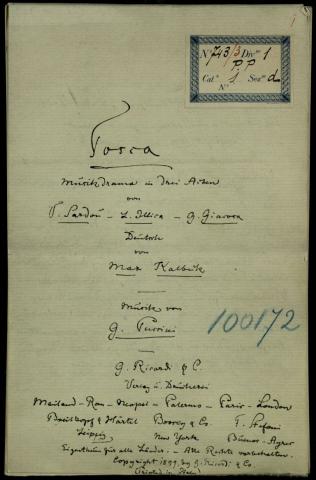 Nº 743/3 Divne 1
P.P
Catª 1 Sezne d
Nº
Tosca
Musikdrama in drei Acten
von
V. Sardou - L. Illica - G. Giacosa
Deutsch
von
Max Kalbeck
Musik von
G. Puccini
100172
G. Ricordi & C.
Verlag u. Druckerei
Mailand - Rom - Neapel - Palermo - Paris - London
Breitkopf & Härtel Boosey & Co. T. Stefani
Leipzig New York Buenos-Ayres
Eigenthum für alle Länder. - Alle Rechte vorbehalten.
Copyright 1899, by G. Ricordi & Co
(Printed in Italy)